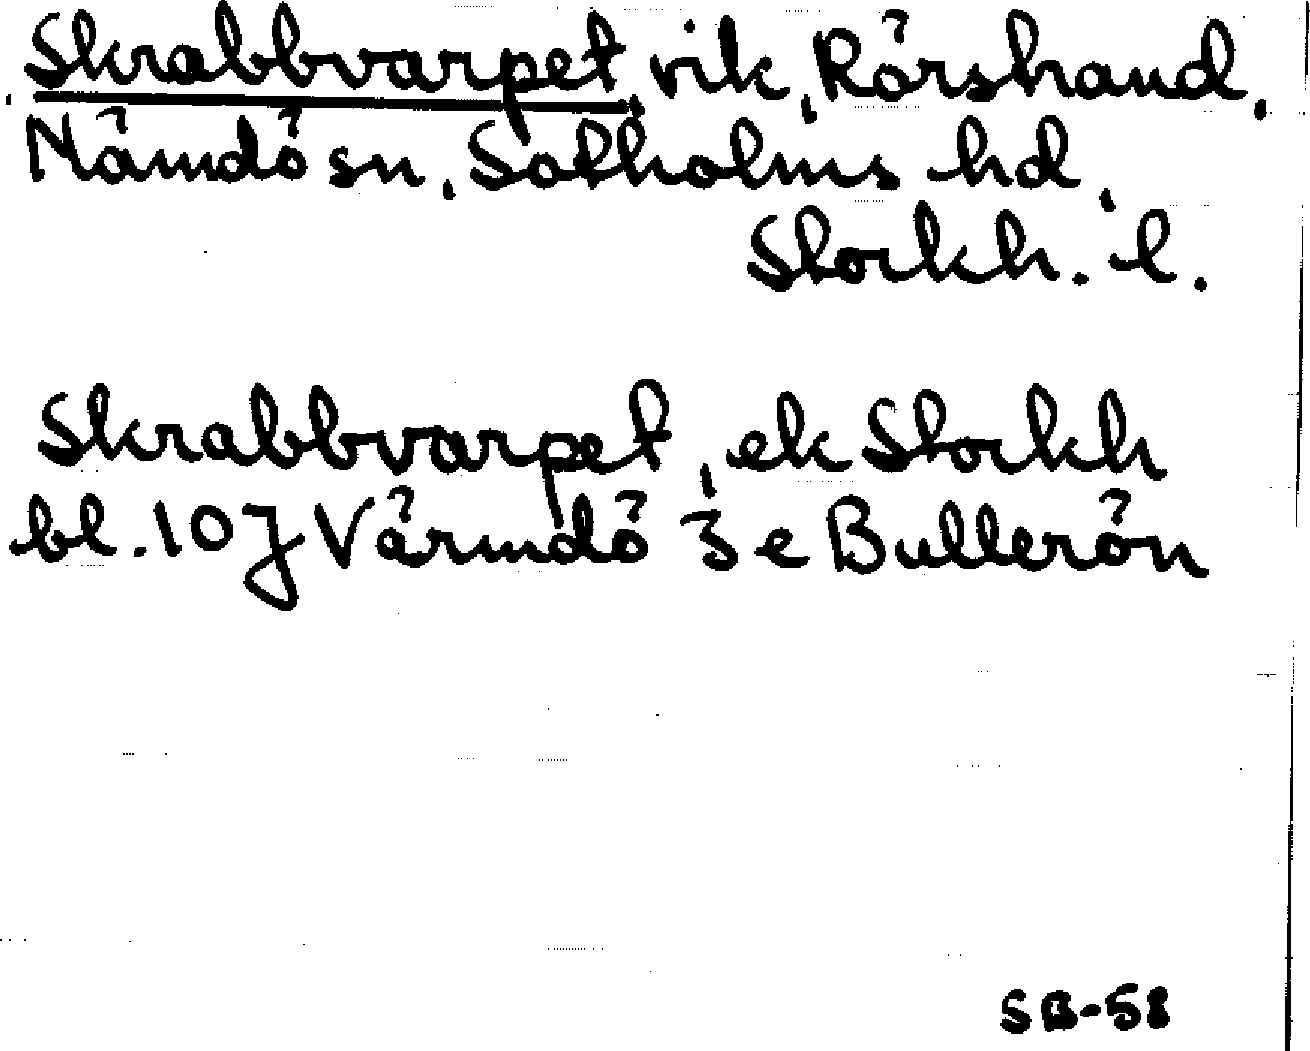 Skrabbvarpet, vik, Rörstrand,
Nämdö sn, Sotholms hd,
Stockh. l.
Skrabbvarpet, ek Stockh
bl. 10J Värmdö 3e Bullerön
SB-58